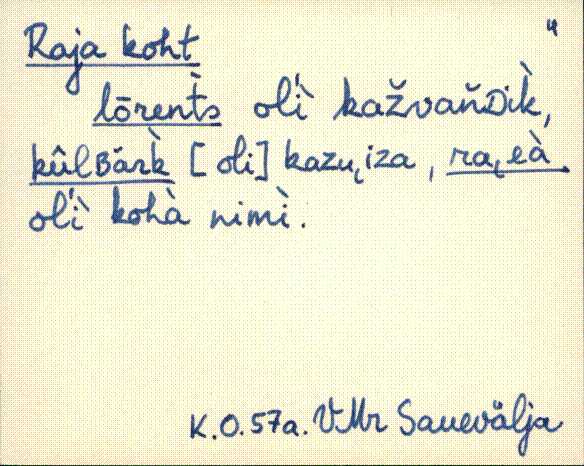 Raja koht "
lōrent̀s oĺì kažvaňᴅik̀,
kûlʙär̀k [oli] kazu̯iza, ra̯eà
oĺì kohà nimì.
K.O.57a. VMr Sauevälja